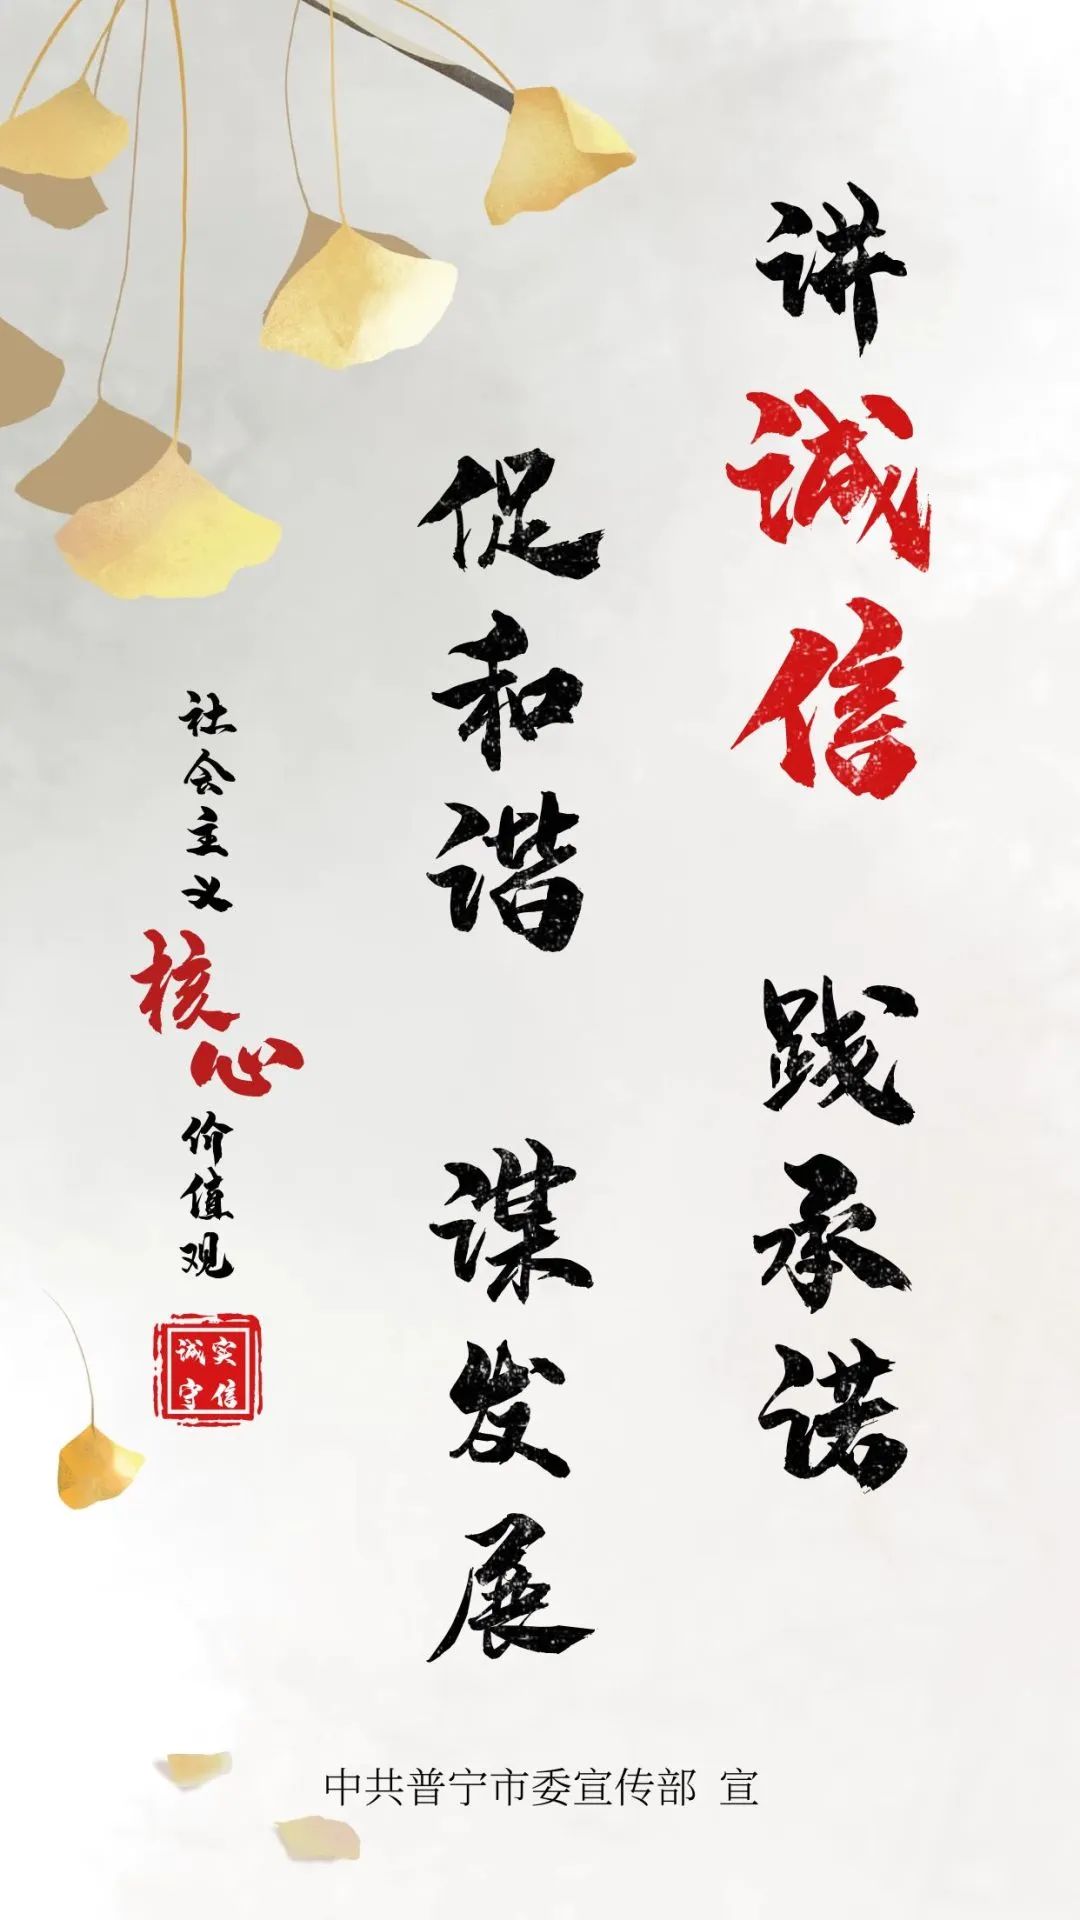 讲诚信 践承诺
促和谐 谋发展
社会主义核心价值观
诚实
守信
中共普宁市委宣传部 宣